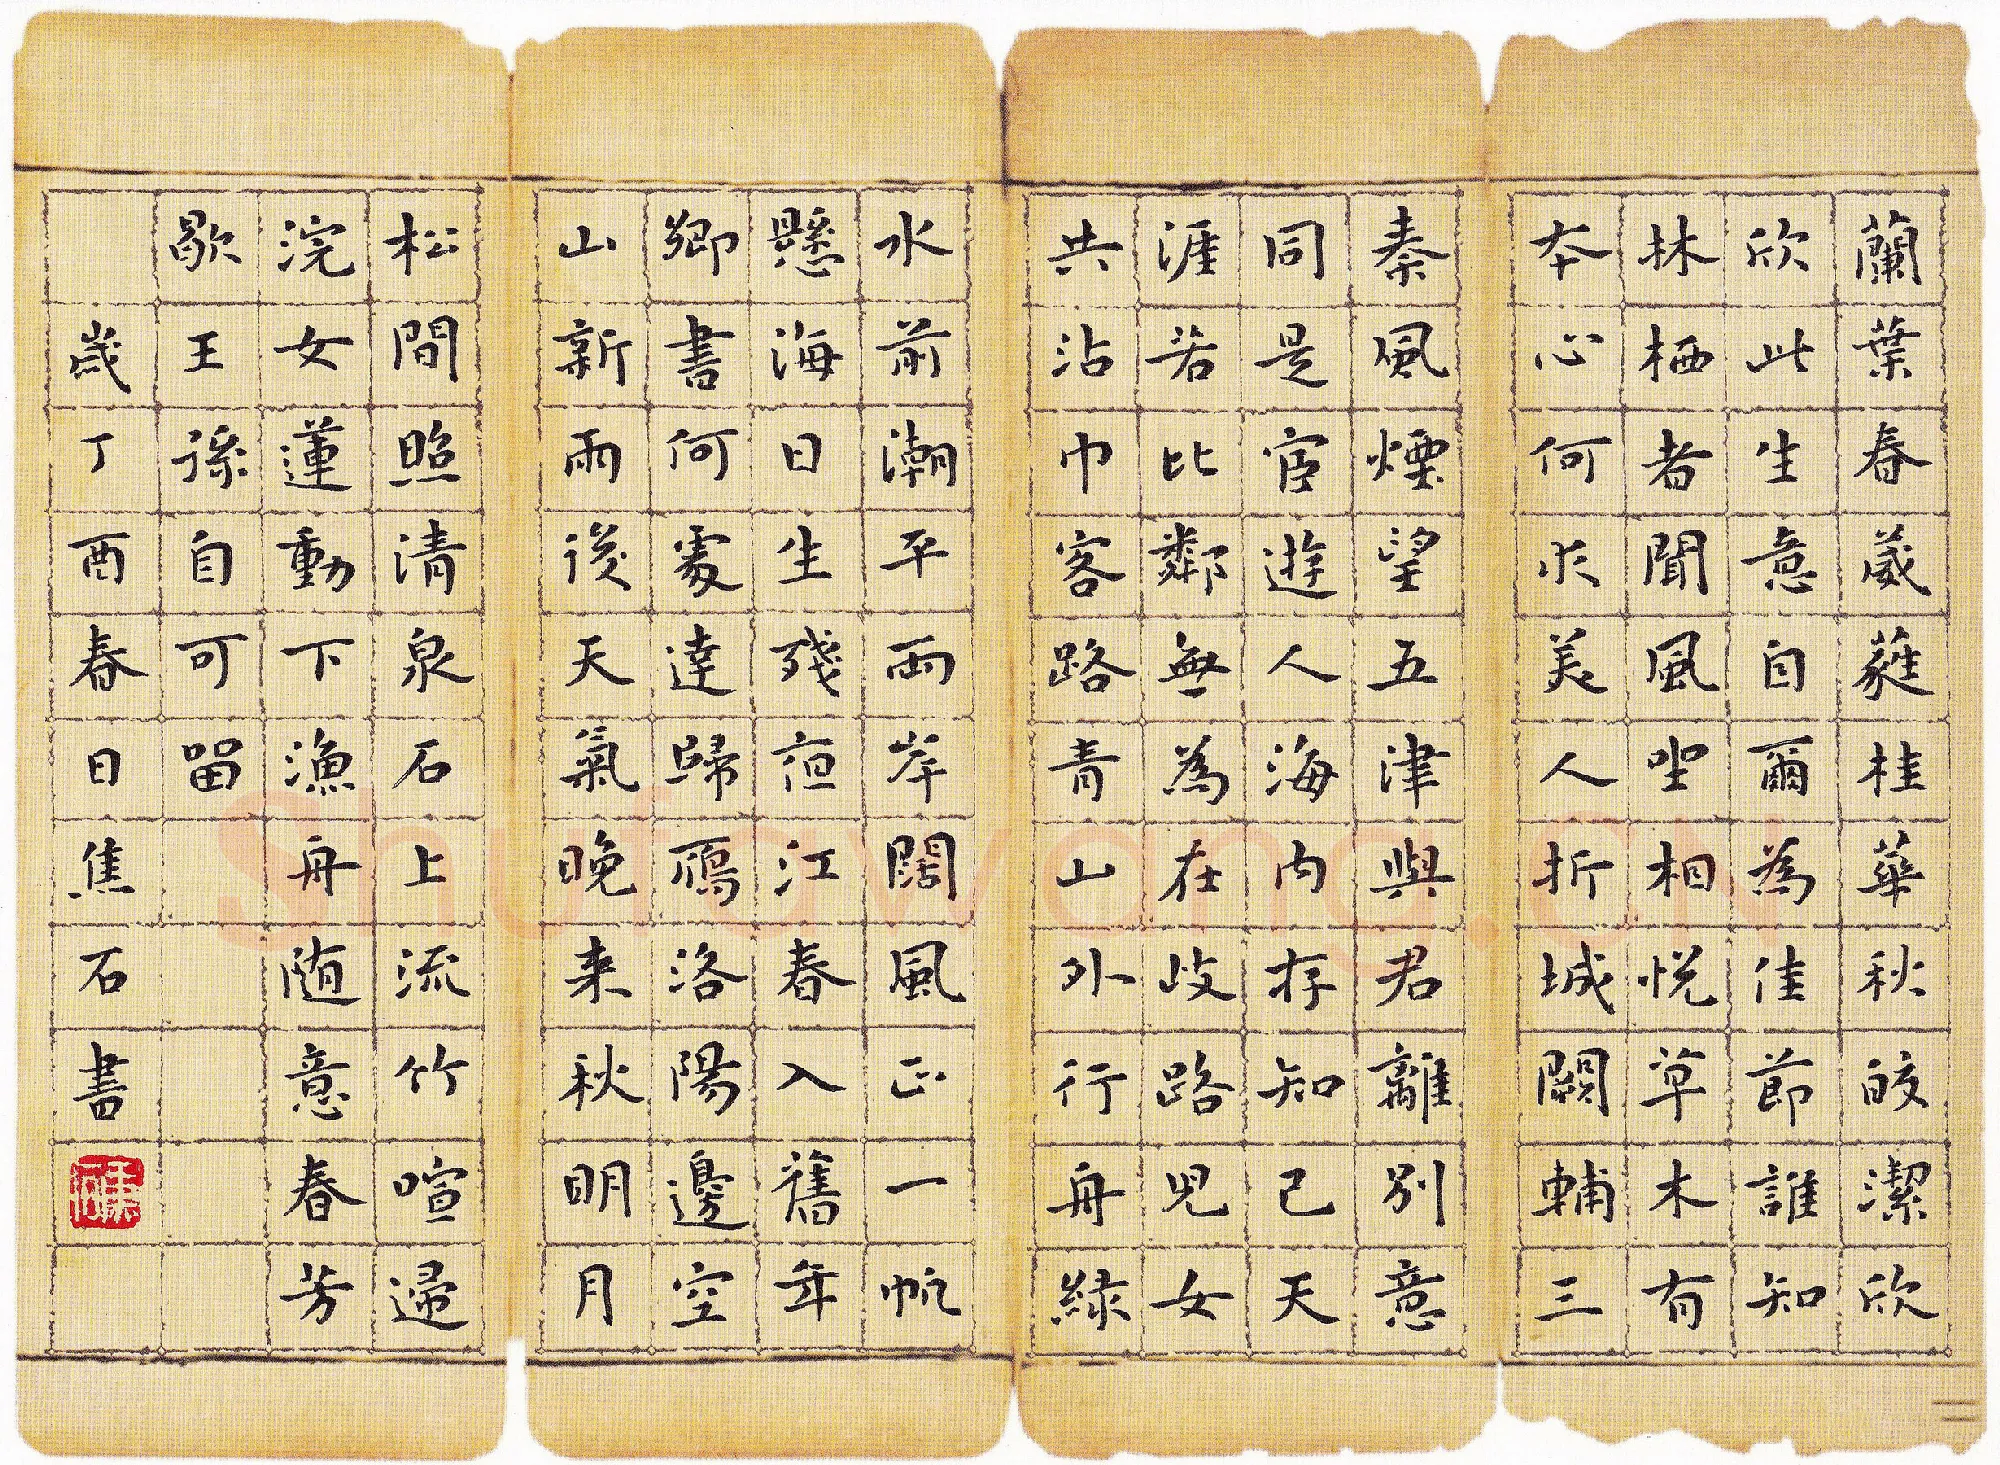 蘭葉春葳蕤桂華秋皎潔欣
欣此生意自爾為佳節誰知
林栖者聞風坐相悅草木有
本心何求美人折城闕輔三
秦風煙望五津與君離別意
同是宦遊人海內存知己天
涯若比鄰無為在歧路兒女
共沾巾客路青山外行舟綠
水前潮平兩岸闊風正一帆
懸海日生殘夜江春入舊年
鄉書何處達歸雁洛陽邊空
山新雨後天氣晚来秋明月
松間照清泉石上流竹喧歸
浣女蓮動下漁舟随意春芳
歇王孫自可留
歲丁酉春日焦石書
Shufawang.CN